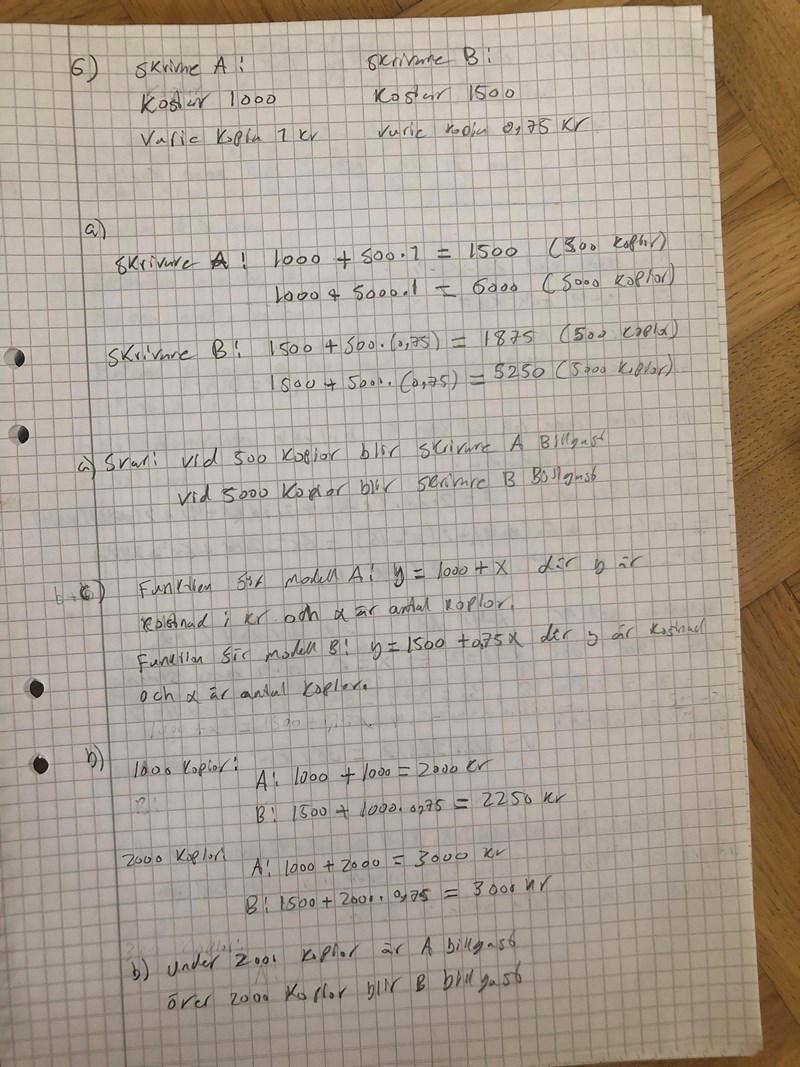 6) Skrivare A: Skrivare B:
Kostar 1000 Kostar 1500
Varje kopia 1 kr varje kopia 0,75 kr
a)
Skrivare A: 1000 + 500·1 = 1500 (500 kopior)
1000 + 5000·1 = 6000 (5000 kopior)
Skrivare B: 1500 + 500·(0,75) = 1875 (500 kopior)
1500 + 5000·(0,75) = 5250 (5000 kopior)
a) Svar: vid 500 kopior blir skrivare A Billigast
vid 5000 kopior blir skrivare B Billigast
b, c) Funktion för modell A: y = 1000 + x där y är
kostnad i kr och x är antal kopior.
Funktion för modell B: y = 1500 + 0,75x där y är kostnad
och x är antal kopior.
b)
1000 kopior: A: 1000 + 1000 = 2000 kr
B: 1500 + 1000·0,75 = 2250 kr
2000 kopior: A: 1000 + 2000 = 3000 kr
B: 1500 + 2000·0,75 = 3000 kr
b) under 2000 kopior är A billigast
över 2000 kopior blir B billigast